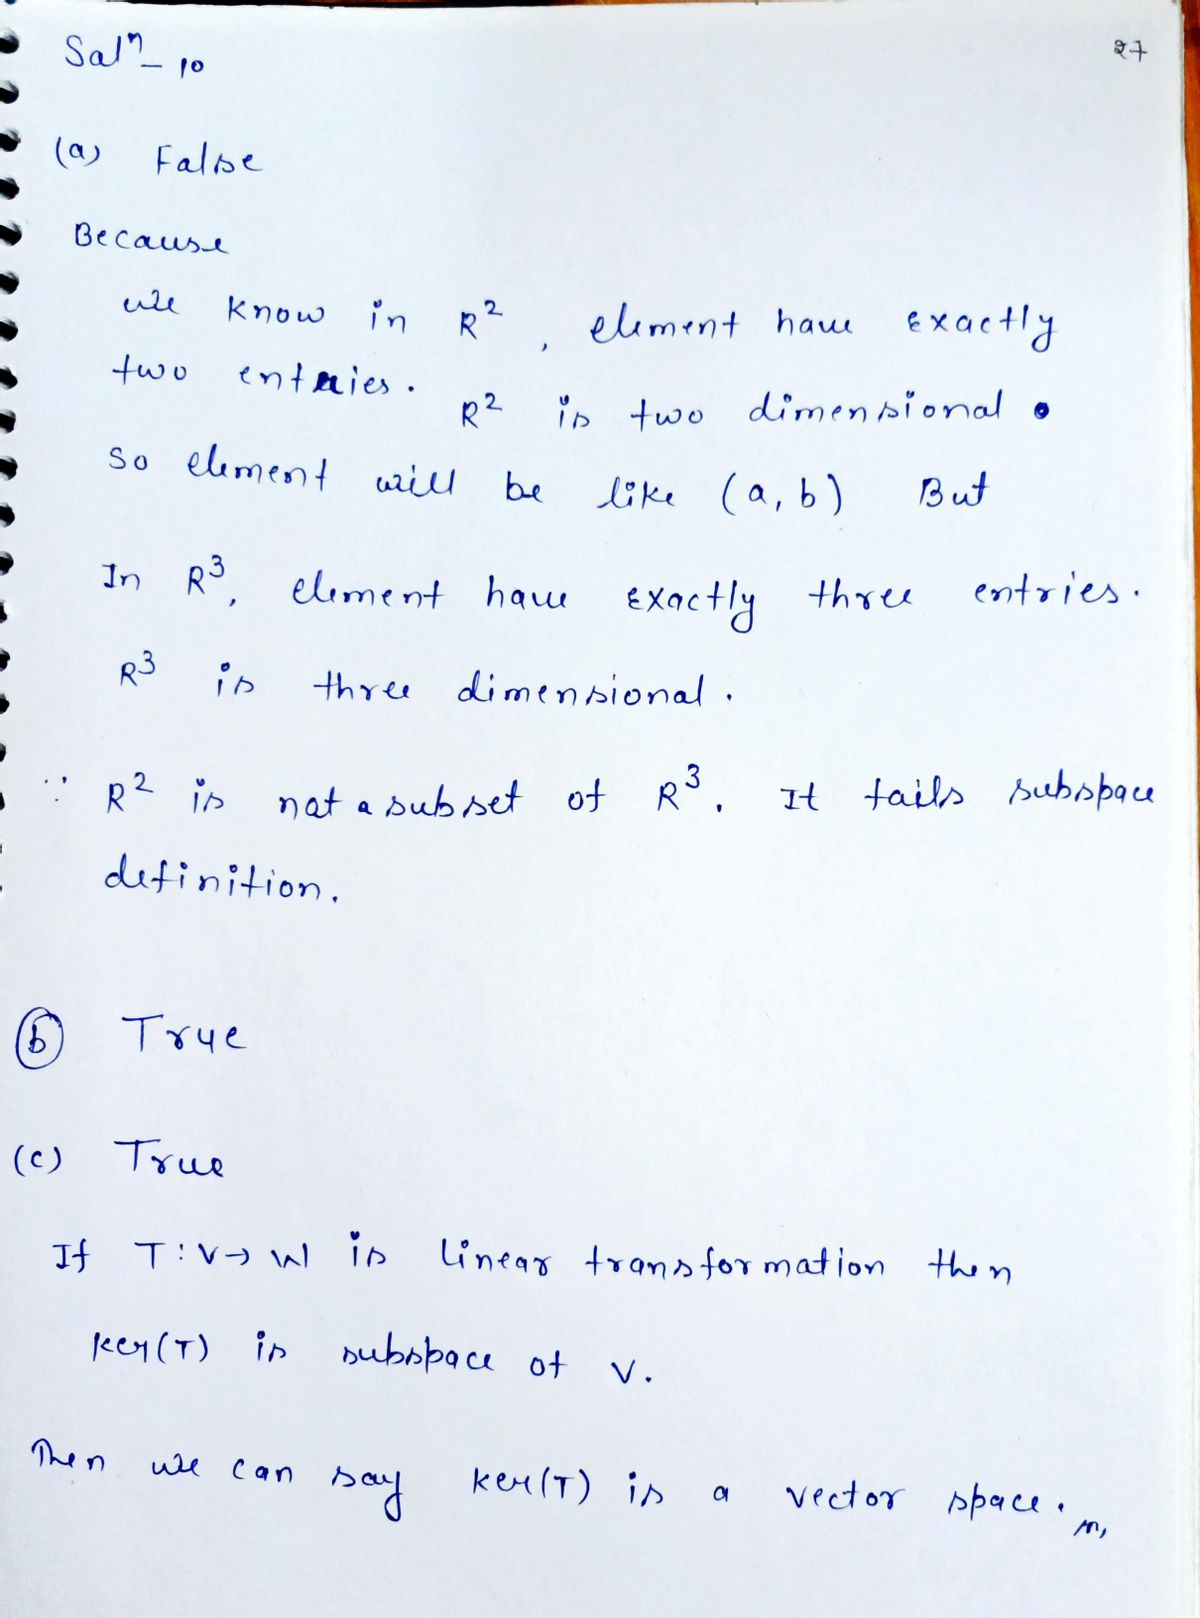 Salⁿ - 10
27
(a) False
Because
we know in R², element have exactly
two entries.
R² is two dimensional.
so element will be like (a, b) But
In R³, element have exactly three entries.
R³ is three dimensional.
∵ R² is not a subset of R³. It fails subspace
definition.
(b) True
(c) True
If T: V → W is linear transformation then
ker(T) is subspace of V.
Then we can say ker(T) is a vector space.